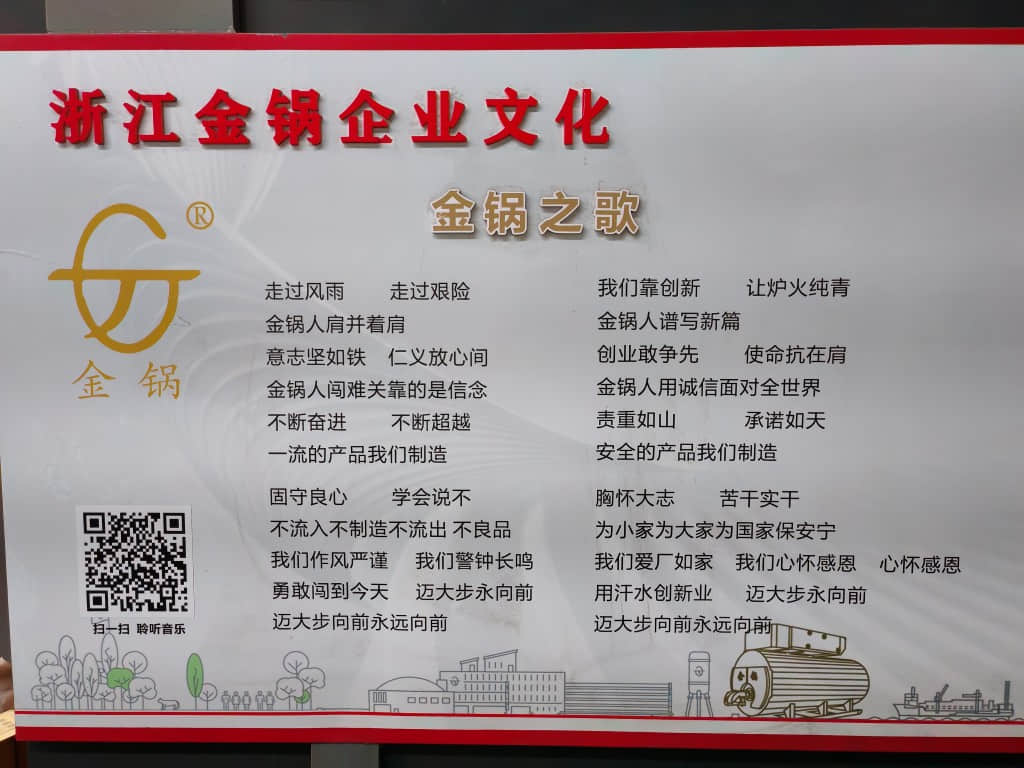 浙江金锅企业文化
金锅之歌
®
金锅
走过风雨 走过艰险
金锅人肩并着肩
意志坚如铁 仁义放心间
金锅人闯难关靠的是信念
不断奋进 不断超越
一流的产品我们制造
固守良心 学会说不
不流入不制造不流出 不良品
我们作风严谨 我们警钟长鸣
勇敢闯到今天 迈大步永向前
迈大步向前永远向前
我们靠创新 让炉火纯青
金锅人谱写新篇
创业敢争先 使命抗在肩
金锅人用诚信面对全世界
责重如山 承诺如天
安全的产品我们制造
胸怀大志 苦干实干
为小家为大家为国家保安宁
我们爱厂如家 我们心怀感恩 心怀感恩
用汗水创新业 迈大步永向前
迈大步向前永远向前
扫一扫 聆听音乐
金锅